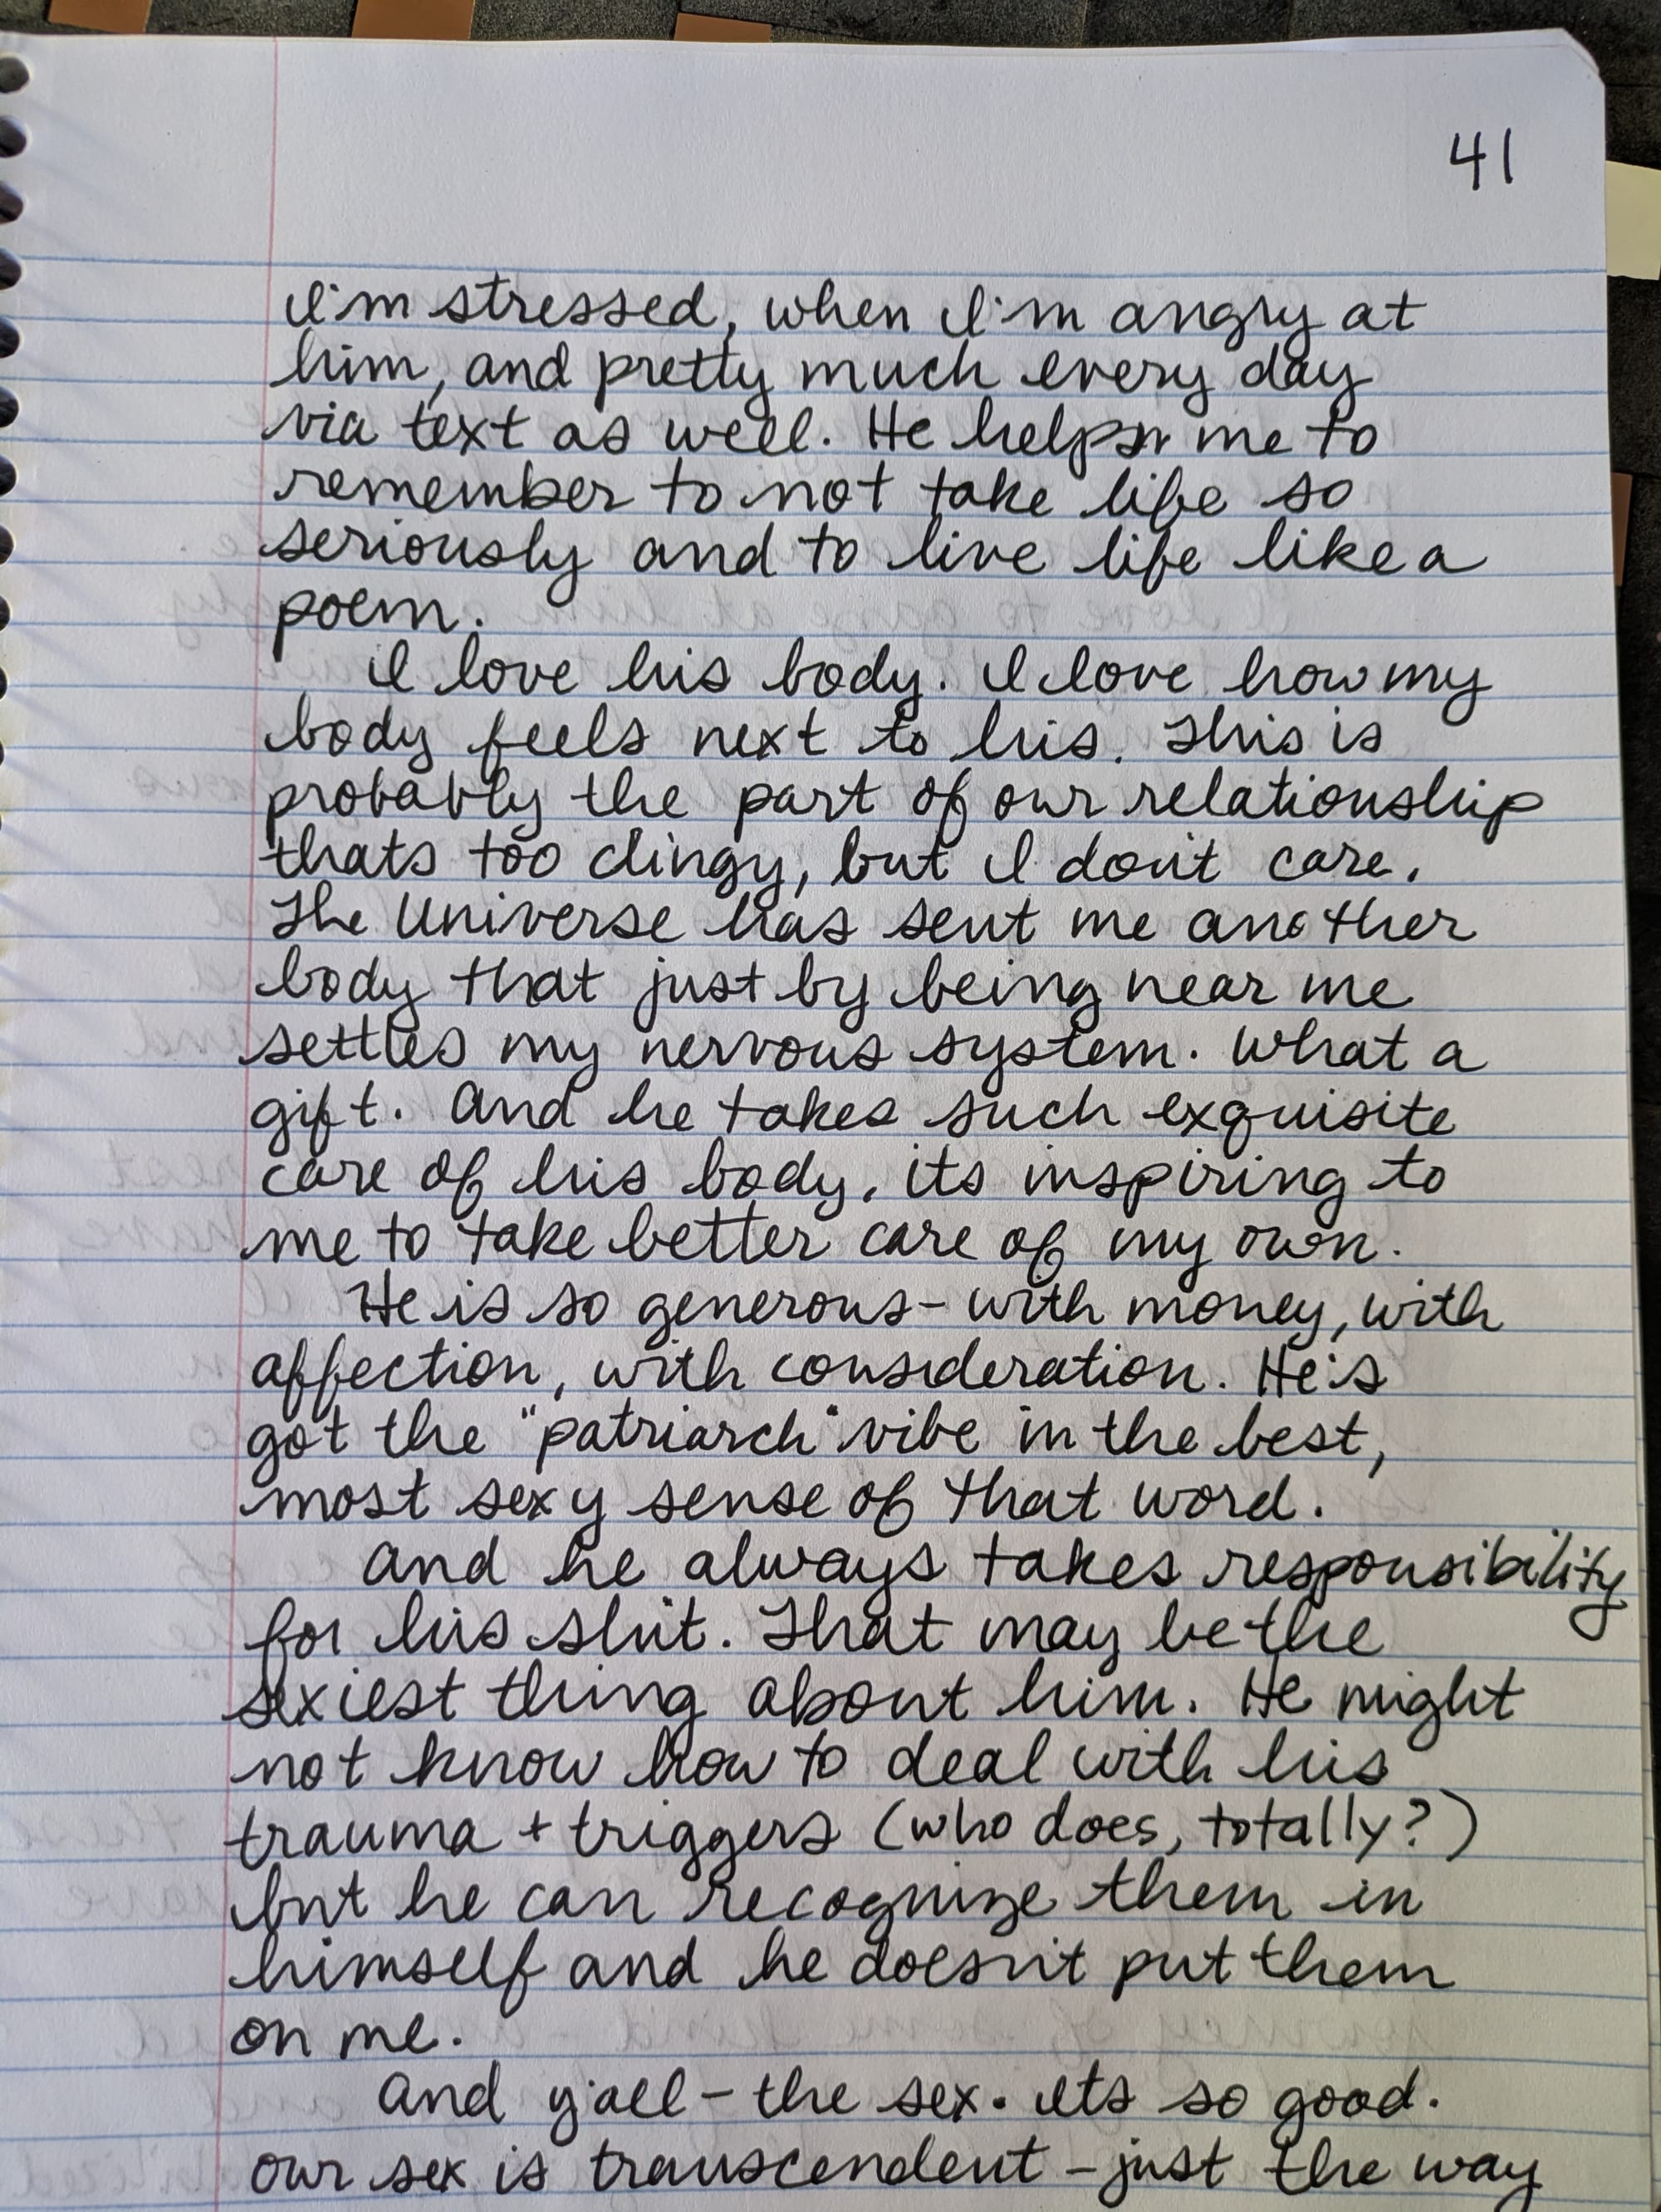 41
I'm stressed, when I'm angry at
him, and pretty much every day
via text as well. He helps me to
remember to not take life so
seriously and to live life like a
poem.
I love his body. I love how my
body feels next to his. This is
probably the part of our relationship
thats too clingy, but I don't care.
The Universe has sent me another
body that just by being near me
settles my nervous system. What a
gift. And he takes such exquisite
care of his body, its inspiring to
me to take better care of my own.
He is so generous - with money, with
affection, with consideration. He's
got the "patriarch" vibe in the best,
most sexy sense of that word.
And he always takes responsibility
for his shit. That may be the
sexiest thing about him. He might
not know how to deal with his
trauma + triggers (who does, totally?)
but he can recognize them in
himself and he doesn't put them
on me.
And y'all - the sex. Its so good.
Our sex is transcendent - just the way